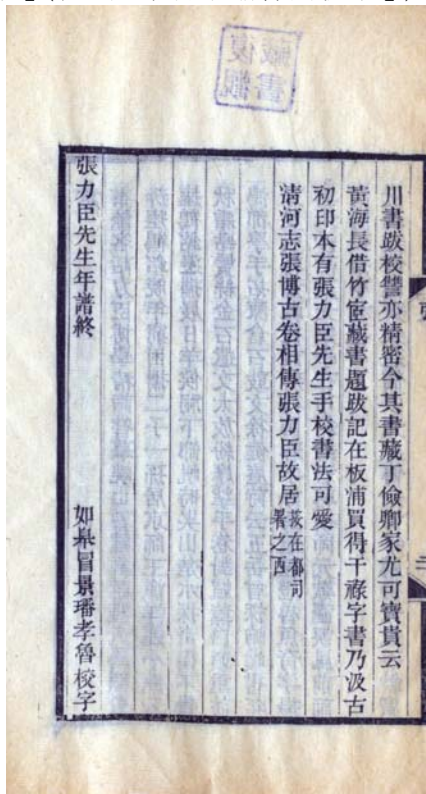 川書跋校讐亦精密今其書藏丁儉卿家尤可寶貴云
黃海長借竹宧藏書題跋記在板浦買得干祿字書乃汲古
初印本有張力臣先生手校書法可愛
清河志張博古卷相傳張力臣故居
茨在都司
署之西
張力臣先生年譜終
如臯冒景璠孝魯校字